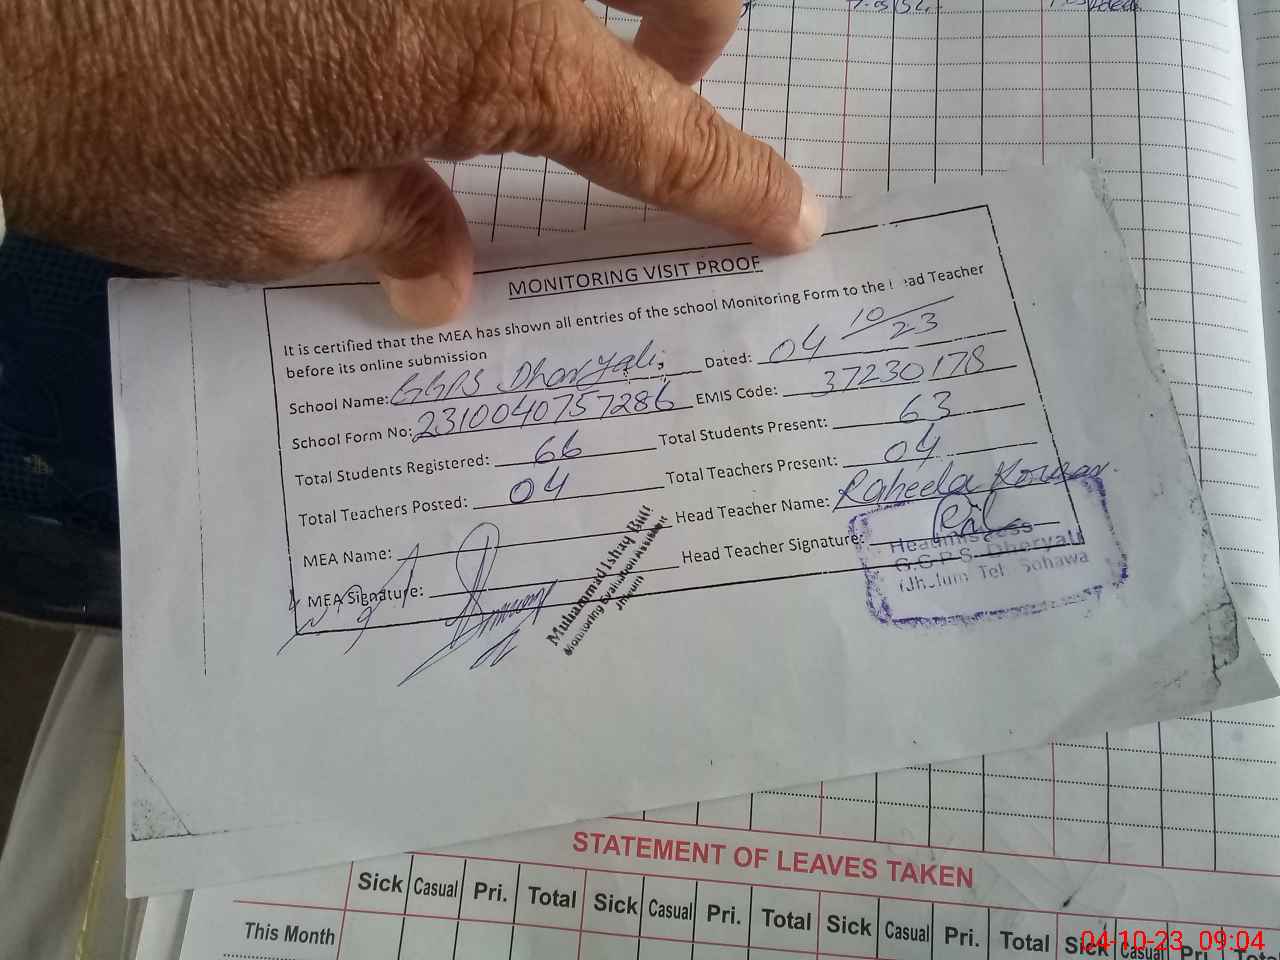 MONITORING VISIT PROOF
It is certified that the MEA has shown all entries of the school Monitoring Form to the Head Teacher
before its online submission
School Name: GGPS Dheryali Dated: 04/10/23
School Form No: 2310040757286 EMIS Code: 37230178
Total Students Registered: 66 Total Students Present: 63
Total Teachers Posted: 04 Total Teachers Present: 04
MEA Name: Head Teacher Name: Raheela Kousar
MEA Signature: Head Teacher Signature:
Muhammad Ishaq Butt
Monitoring Evaluation Assistant
Jhelum
Headmistress
G.G.P.S. Dheryali
(Jhelum Teh. Sohawa
STATEMENT OF LEAVES TAKEN
Sick Casual Pri. Total Sick Casual Pri. Total Sick Casual Pri. Total Sick Casual Pri. Total
This Month
04-10-23 09:04